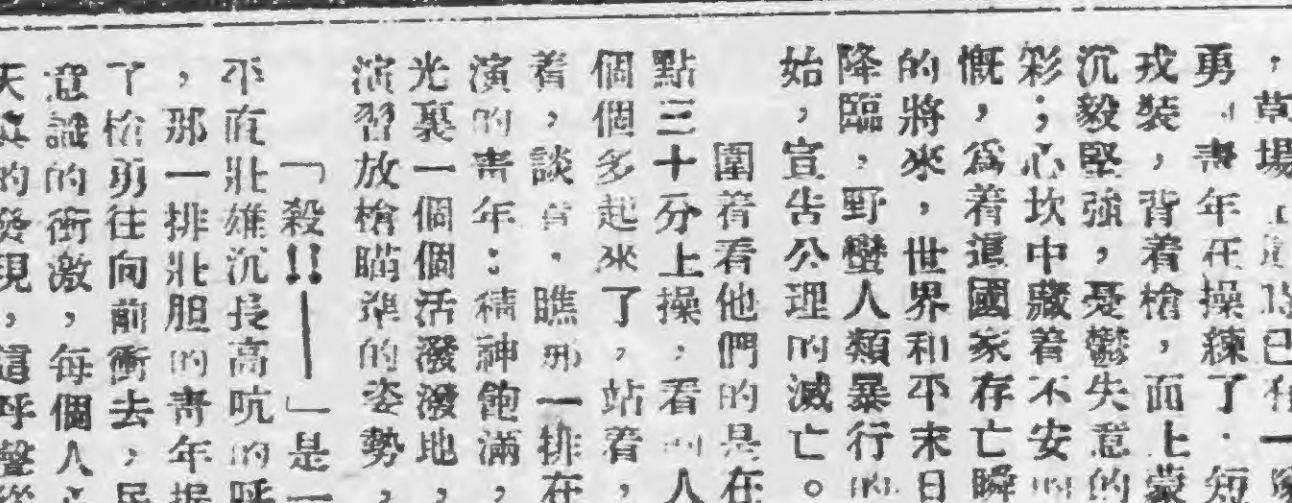 ，草場上這時已有一隊
勇的青年在操練了．短
戎裝，背着槍，面上蒙
沉毅堅強，憂鬱失意的
彩；心坎中藏着不安的
慨，爲着這國家存亡瞬
的將來，世界和平末日
降臨，野蠻人類暴行的
始，宣告公理的滅亡。
圍着看他們的是在
點三十分上操，看的人
個個多起來了，站着，
着，談着．瞧那一排在
演的青年：精神飽滿，
光聚一個個活潑潑地，
演習放槍瞄準的姿勢，
「殺!!——」是一
平直壯雄沉長高吭的呼
，那一排壯胆的青年握
了槍勇往向前衝去，民
意識的衝激，每個人
天眞的發現，這呼聲從